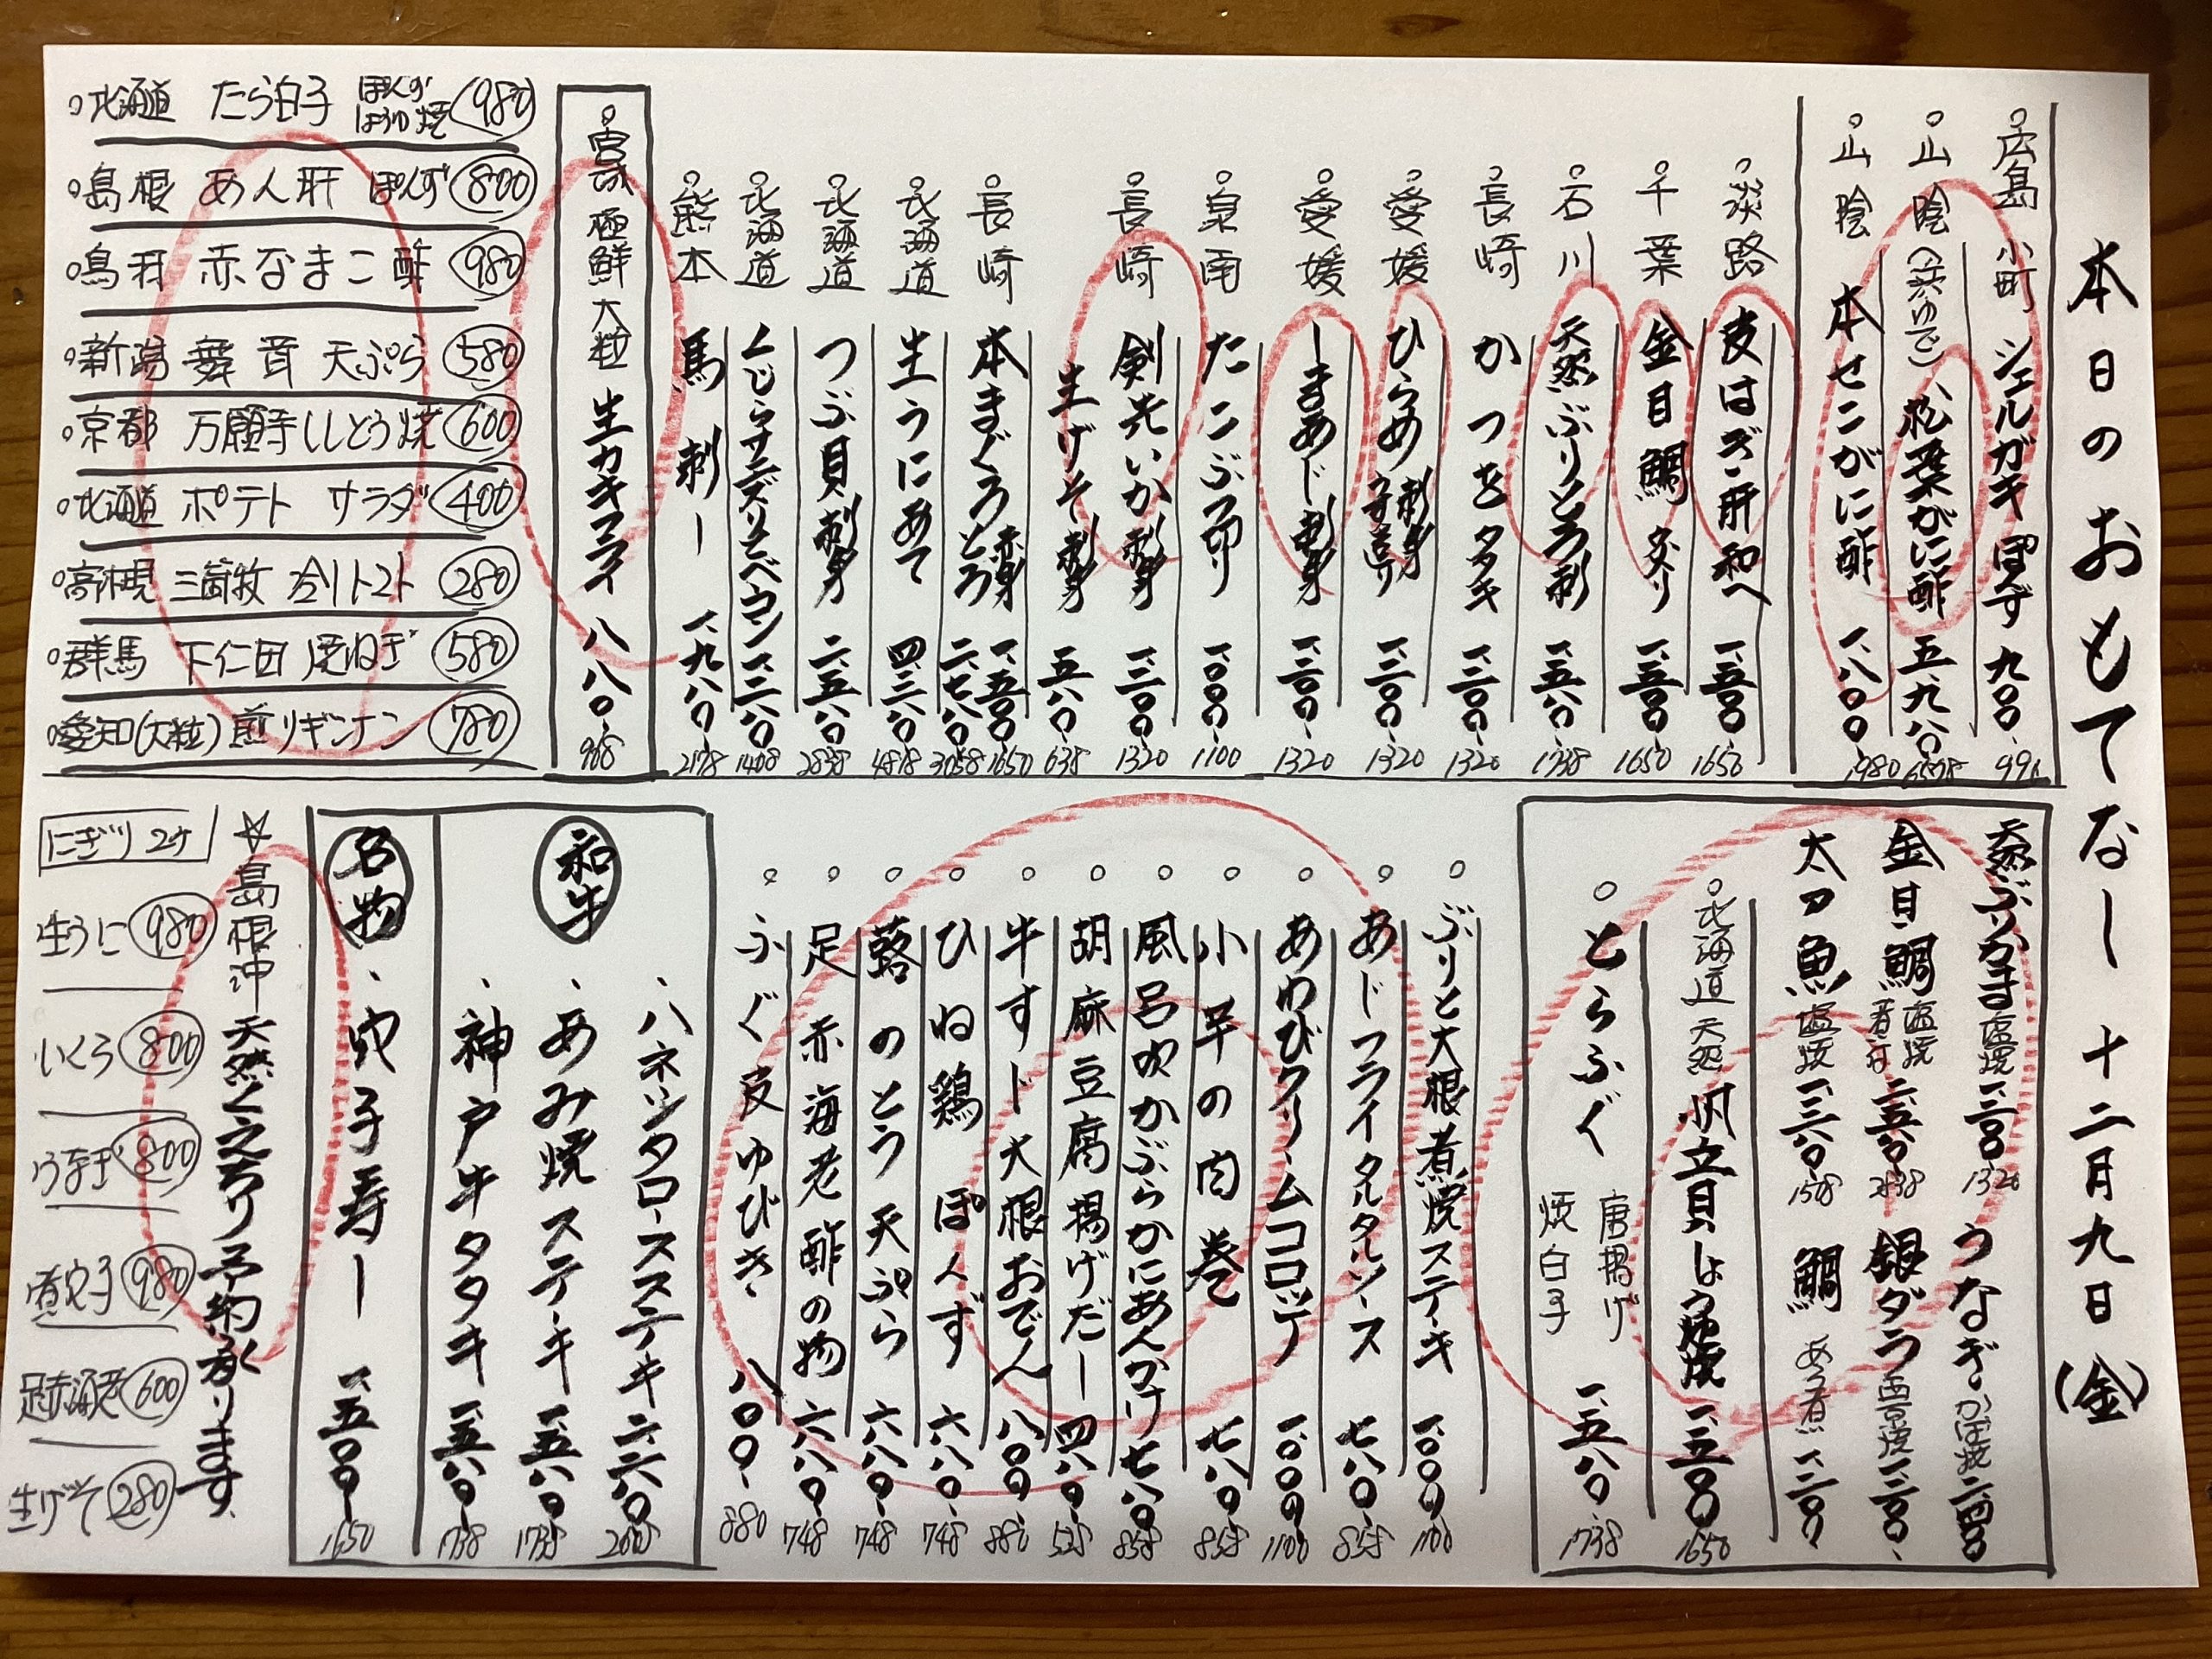 本日のおもてなし 十二月九日(金)
○広島 小町 シェルガキ ぽんず 九〇〇 990
○山陰(浜ゆで) 松葉がに酢 五、九八〇 6578
○山陰 本せこがに酢 一、八〇〇 1980
○淡路 皮はぎ肝和へ 一、五〇〇 1650
○千葉 金目鯛炙り 一、五〇〇 1650
○石川 天然ぶりとろ刺 一、五八〇 1738
○長崎 かつをタタキ 一、二〇〇 1320
○愛媛 ひらめ 刺身 一、二〇〇 1320
○愛媛 しまあじ刺身 一、二〇〇 1320
○泉南 たこぶつ切り 一、〇〇〇 1100
○長崎 剣先いか刺身 一、二〇〇 1320
生げそ刺身 五八〇 638
○長崎 本まぐろ 赤身 一、五〇〇 1650
とろ 二、七八〇 3058
○北海道 生うにあて 四、三八〇 4818
○北海道 つぶ貝刺身 二、五八〇 2838
○北海道 くじらサエズリとベーコン 一、二八〇 1408
○熊本 馬刺し 一、九八〇 2178
○宮城 極鮮大粒 生カキフライ 八八〇 968
○北海道 たら白子 ぽんず しょうゆ焼 980
○島根 あん肝 ぽんず 800
○鳥羽 赤なまこ酢 980
○新潟 舞茸 天ぷら 580
○京都 万願寺ししとう焼 600
○北海道 ポテト サラダ 400
○高槻 三箇牧 冷しトマト 280
○群馬 下仁田 焼ねぎ 580
○愛知(大粒)煎りギンナン 780
天然ぶりかま 塩焼 一、二〇〇 1320 うなぎ かば焼 二、四〇〇
金目鯛 塩焼 煮付 二、五八〇 2838 銀ダラ 西京焼 一、二〇〇
太刀魚 塩焼 一、三八〇 1518 鯛 あら煮 一、二〇〇
○北海道 天然 帆立貝しょうゆ焼 一、五〇〇 1650
○とらふぐ 唐揚げ 焼白子 一、五八〇 1738
○ぶりと大根煮焼ステーキ 一、〇〇〇 1100
○あじフライタルタルソース 七八〇 858
○あわびクリームコロッケ 一、〇〇〇 1100
○小芋の肉巻 七八〇 858
○風呂吹かぶらかにあんかけ 七八〇 858
○胡麻豆腐揚げだし 四八〇 528
○牛すじ大根おでん 八〇〇 880
○ひね鶏ぽんず 六八〇 748
○蕗のとう天ぷら 六八〇 748
○足赤海老酢の物 六八〇 748
○ふぐ皮ゆびき 八〇〇 880
和牛
・ハネシタロースステキ 二、六〇〇
・あみ焼ステーキ 一、五八〇 1738
・神戸牛タタキ 一、五八〇 1738
名物
・穴子寿し 一、五〇〇 1650
☆島根沖 天然くえちり予約承ります。
にぎり 2ケ
生うに 980
いくら 800
うなぎ 800
煮穴子 980
足赤海老 600
生げそ 280